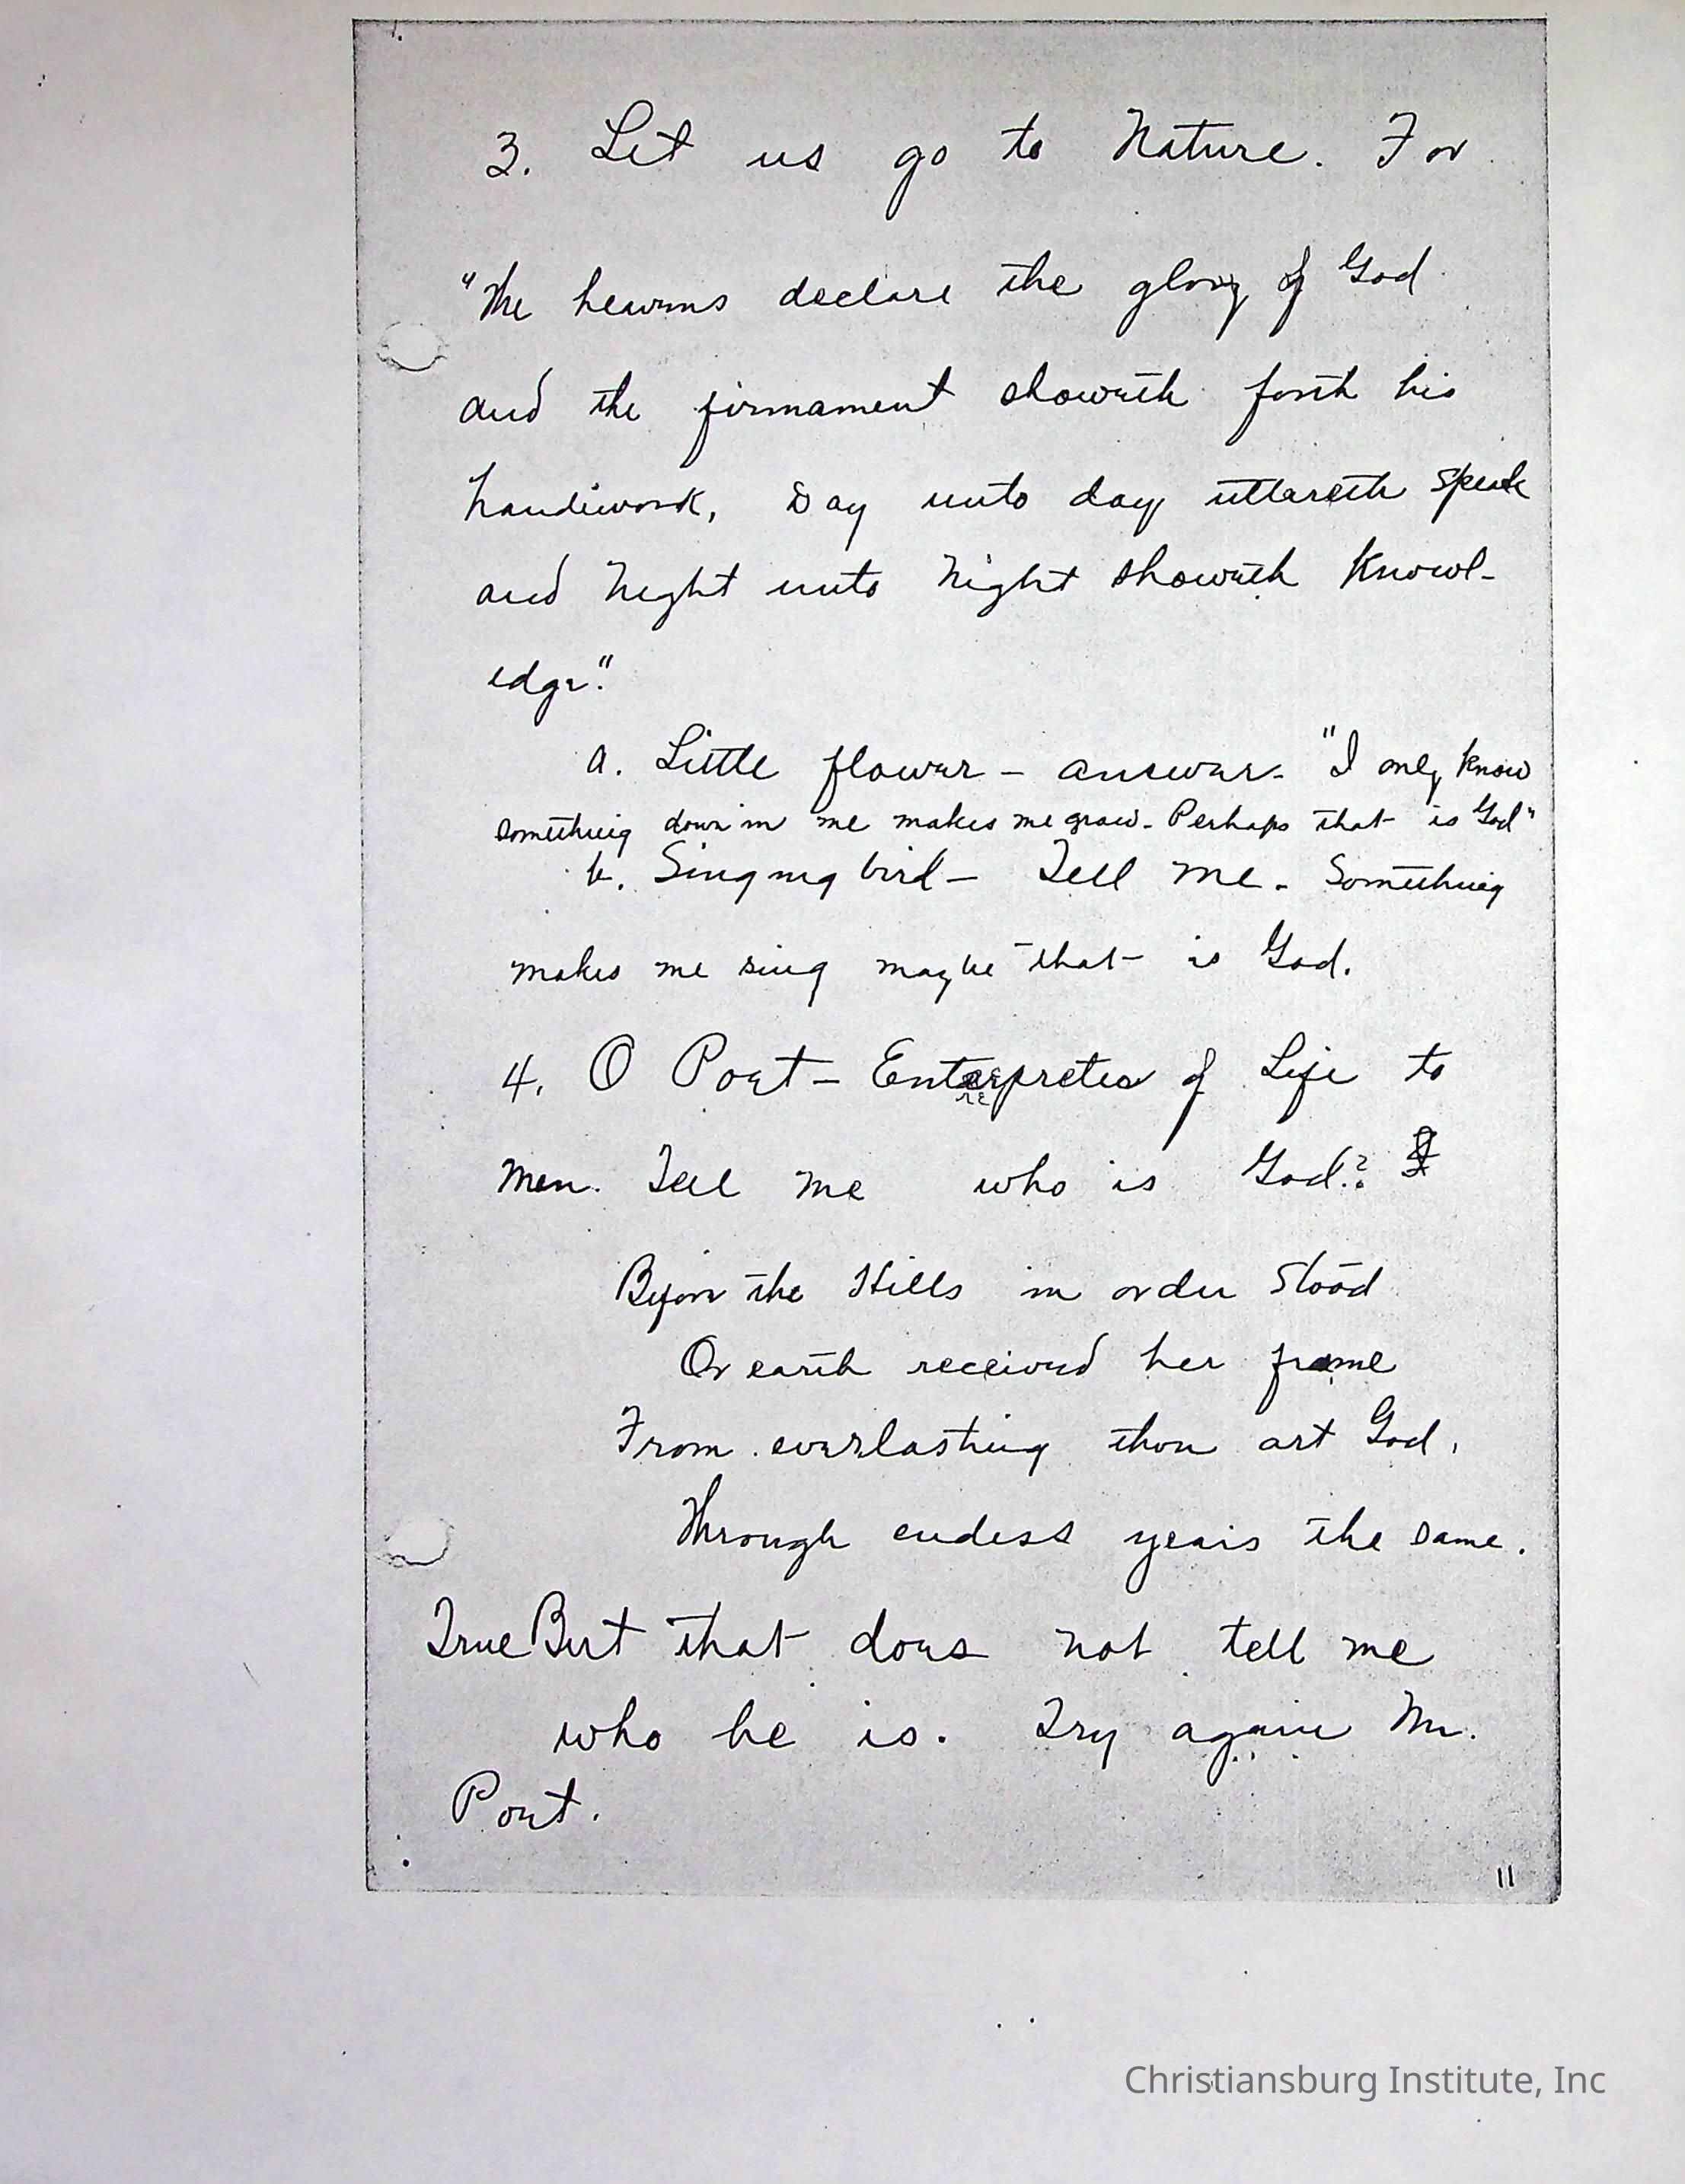 3. Let us go to Nature. For
"The heavens declare the glory of God
and the firmament showeth forth his
handiwork, Day unto day uttareth speech
and night unto night showeth Knowl-
edge."
a. Little flower - answer- "I only know
something down in me makes me grow- Perhaps that is God"
b. Singing bird - Tell me - Something
makes me sing maybe that is God.
4. O Poet - Enterpreter of Life to
re
men. Tell me who is God?
Before the Hills in order stood
Or earth received her frame
From everlasting thou art God,
Through endess years the same.
True But that does not tell me
who he is. Try again Mr.
Poet.
11
Christiansburg Institute, Inc